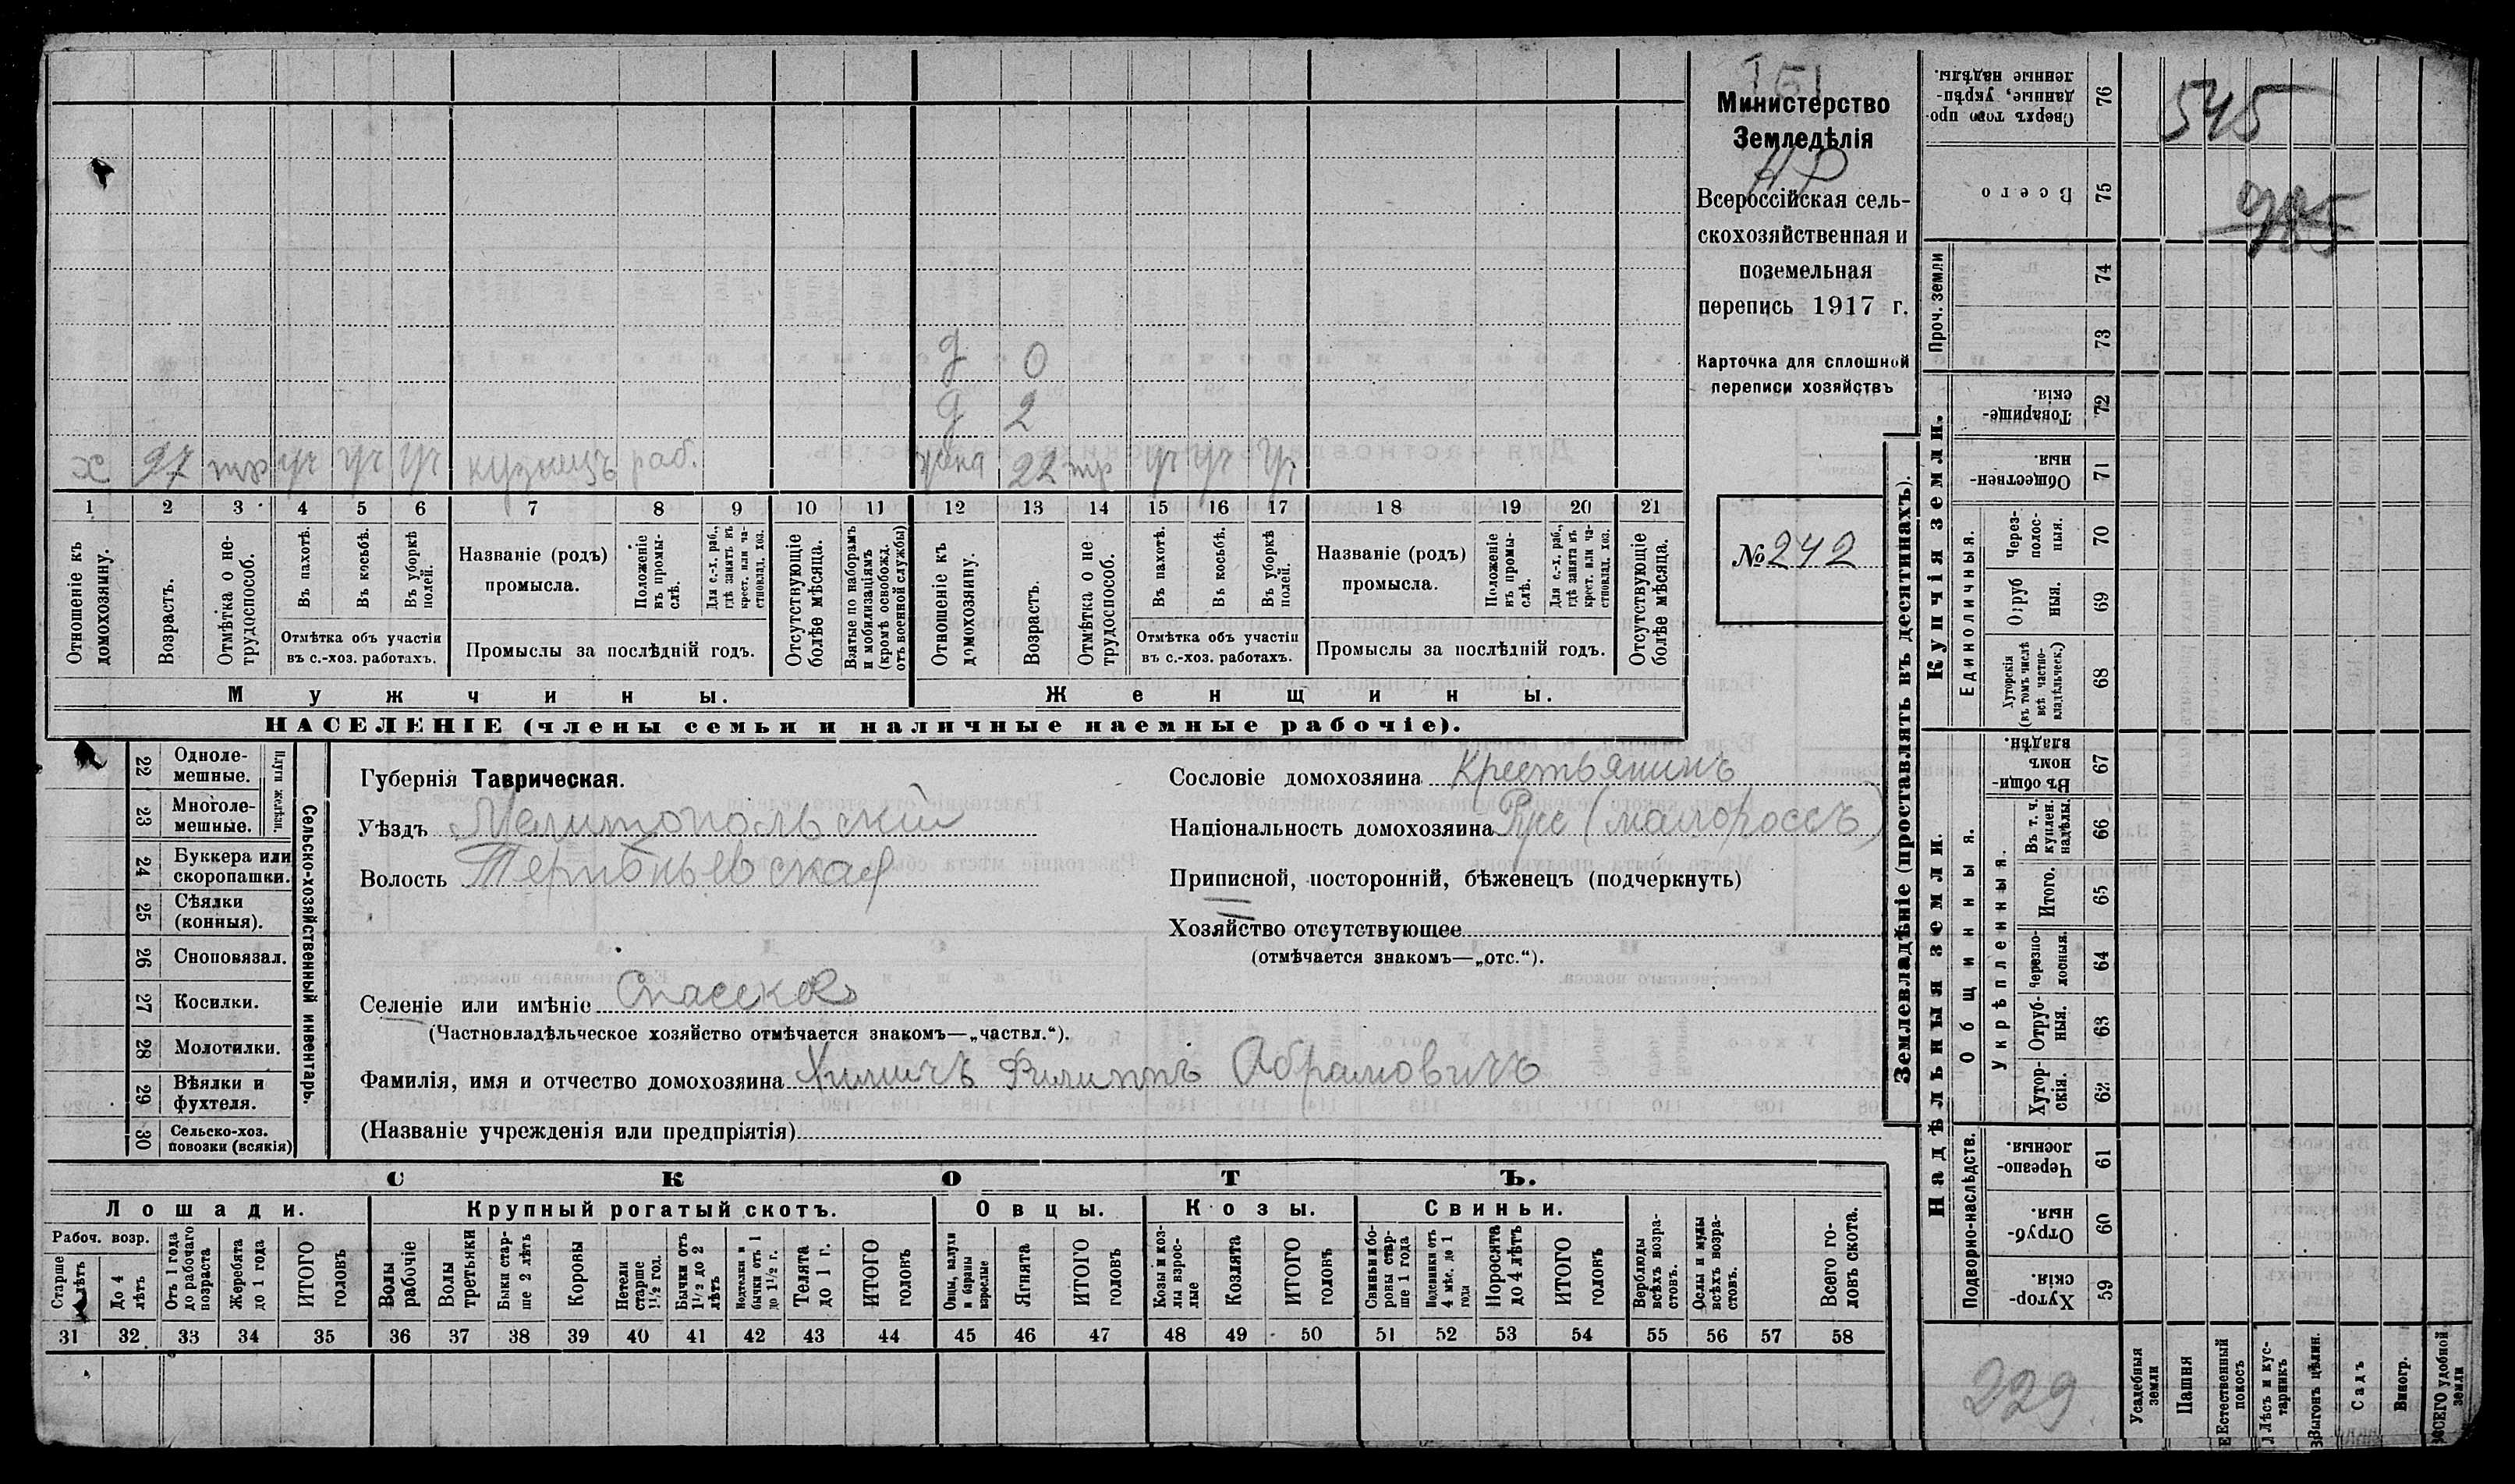 151
Министерство
Земледѣлія
НР
Всероссійская сель-
скохозяйственная и
поземельная
перепись 1917 г.
Карточка для сплошной
переписи хозяйствъ
№ 242
д 0
д 2
х 27 тр уч уч уч кузнецъ раб. жена 22 тр уч уч уч
1 2 3 4 5 6 7 8 9 10 11 12 13 14 15 16 17 18 19 20 21
Отношеніе къ домохозяину.
Возрастъ.
Отмѣтка о не-трудоспособ.
Въ пахотѣ.
Въ косьбѣ.
Въ уборкѣ полей.
Отмѣтка объ участіи
въ с.-хоз. работахъ.
Названіе (родъ)
промысла.
Положеніе въ промы-слѣ.
Для с.-х. раб., гдѣ занятъ въ крест. или ча-стновлад. хоз.
Промыслы за послѣдній годъ.
Отсутствующіе болѣе мѣсяца.
Взятые по наборамъ и мобилизаціямъ (кромѣ освобожд. отъ военной службы)
Отношеніе къ домохозяину.
Возрастъ.
Отмѣтка о не трудоспособ.
Въ пахотѣ.
Въ косьбѣ.
Въ уборкѣ полей.
Отмѣтка объ участіи
въ с.-хоз. работахъ.
Названіе (родъ)
промысла.
Положеніе въ промы-слѣ.
Для с.-х. раб., гдѣ занята въ крест. или ча-стновлад. хоз.
Промыслы за послѣдній годъ.
Отсутствующіе болѣе мѣсяца.
Мужчины. Женщины.
НАСЕЛЕНІЕ (члены семьи и наличные наемные рабочіе).
22 Одноле-мешные.
23 Многоле-мешные.
Плуги желѣзн.
24 Буккера или скоропашки.
25 Сѣялки (конныя).
26 Сноповязал.
27 Косилки.
28 Молотилки.
29 Вѣялки и фухтеля.
30 Сельско-хоз. повозки (всякія)
Сельско-хозяйственный инвентарь.
Губернія Таврическая.
Уѣздъ Мелитопольскій
Волость Терпѣньевская
Селеніе или имѣніе Спасское
(Частновладѣльческое хозяйство отмѣчается знакомъ—„частвл.“).
Фамилія, имя и отчество домохозяина Химичъ Филиппъ Абрамовичъ
(Названіе учрежденія или предпріятія)
Сословіе домохозяина Крестьянинъ
Національность домохозяина Рус (малороссъ)
Приписной, посторонній, бѣженецъ (подчеркнуть)
Хозяйство отсутствующее
(отмѣчается знакомъ—„отс.“).
СКОТЪ.
Лошади. Крупный рогатый скотъ. Овцы. Козы. Свиньи.
Рабоч. возр.
Старше лѣтъ
До 4 лѣтъ
Отъ 1 года до рабочаго возраста
Жеребята до 1 года
ИТОГО головъ
Волы рабочіе
Волы третьяки
Быки стар-ше 2 лѣтъ
Коровы
Нетели старше 1½ год.
Бычки отъ 1½ до 2 лѣтъ
Подтелки и бычки отъ 1 до 1½ г.
Телята до 1 г.
ИТОГО головъ
Овцы, валухи и бараны взрослые
Ягнята
ИТОГО головъ
Козы и коз-лы взрос-лые
Козлята
ИТОГО головъ
Свиньи и бо-ровы стар-ше 1 года
Подсвинки отъ 4 мѣс. до 1 года
Поросята до 4 лѣтъ
ИТОГО головъ
Верблюды всѣхъ возра-стовъ.
Ослы и мулы всѣхъ возра-стовъ.
Всего го-ловъ скота.
31 32 33 34 35 36 37 38 39 40 41 42 43 44 45 46 47 48 49 50 51 52 53 54 55 56 57 58
Землевладѣніе (проставлять въ десятинахъ).
Надѣльныя земли. Купчія земли. Проч. земли
Подворно-наслѣдств. Общинныя. Укрѣпленныя. Единоличныя.
Хутор-скія. 59
Отруб-ныя. 60
Черезпо-лосныя. 61
Хутор-скія. 62
Отруб-ныя. 63
Черезпо-лосныя. 64
Итого. 65
Въ т. ч. куплен. надѣлы. 66
Въ общи-номъ владѣн. 67
Хуторскія (въ томъ числѣ всѣ частно-владѣльческ.) 68
Отруб ныя. 69
Через-полос-ныя. 70
Обществен-ныя. 71
Товарище-скія. 72
73
74
Всего 75
Сверхъ того про-данные, укрѣп-ленные надѣлы. 76
545
985
229
Усадебныя земли
Пашня
Естественный покосъ
Лѣсъ и кус-тарникъ
Выгонъ цѣлин.
Садъ
Виногр.
ВСЕГО удобной земли